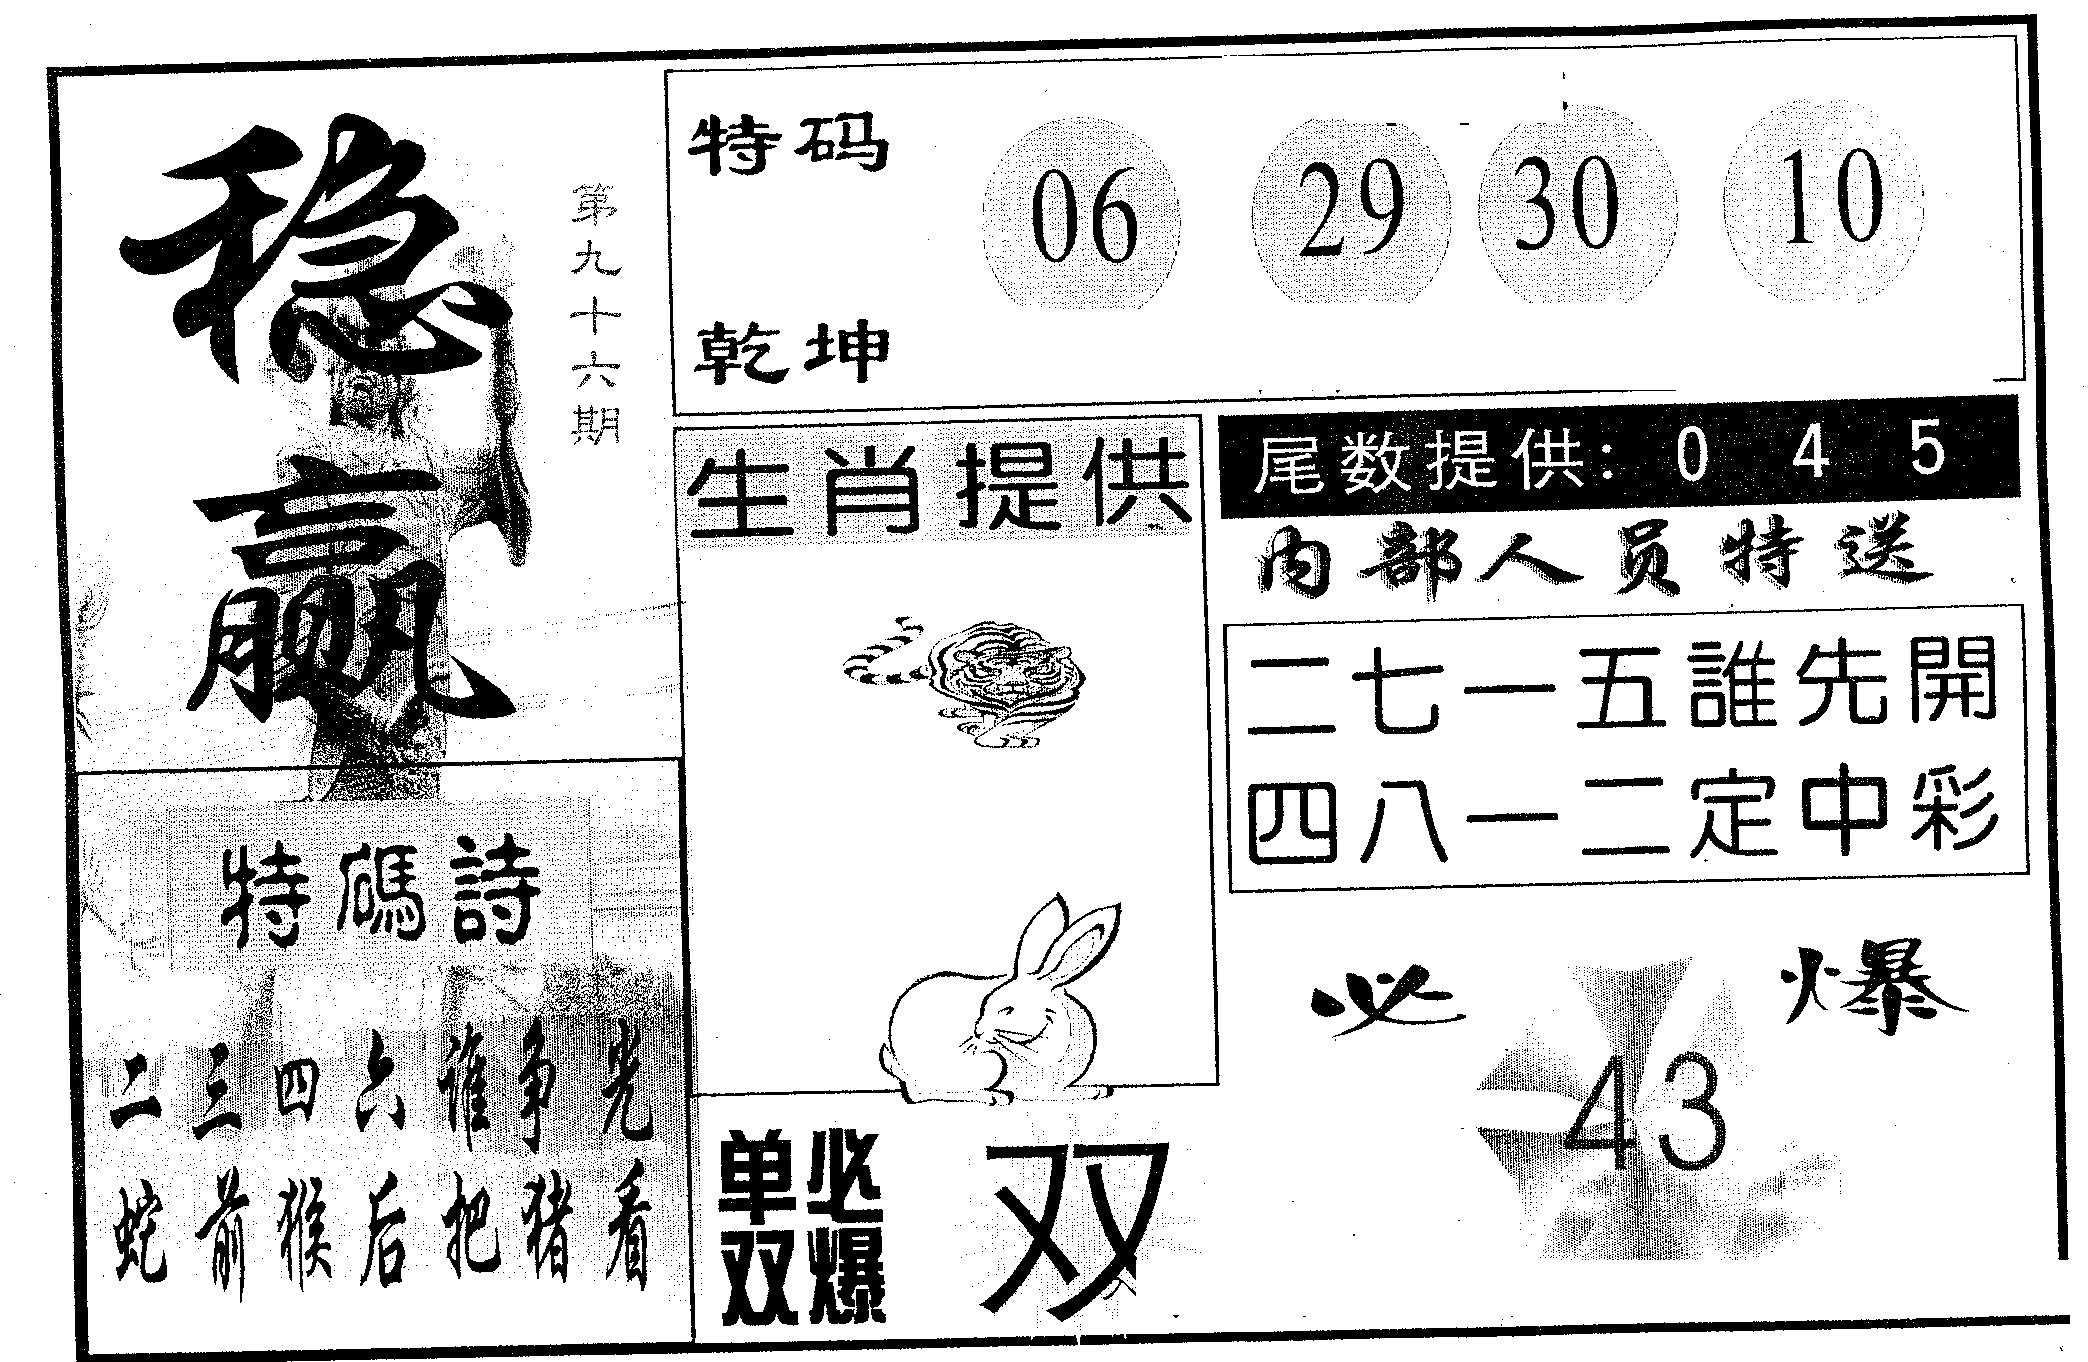 稳赢
第九十六期
特码
乾坤
06 29 30 10
生肖提供
尾数提供: 0 4 5
内部人员特送
二七一五誰先開
四八一二定中彩
特碼詩
二三四六谁争先
蛇前猴后把猪看
单双必爆
双
必爆
43